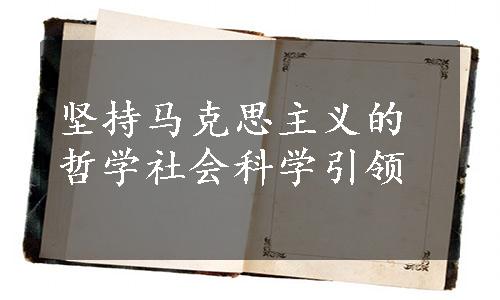 坚持马克思主义的
哲学社会科学引领